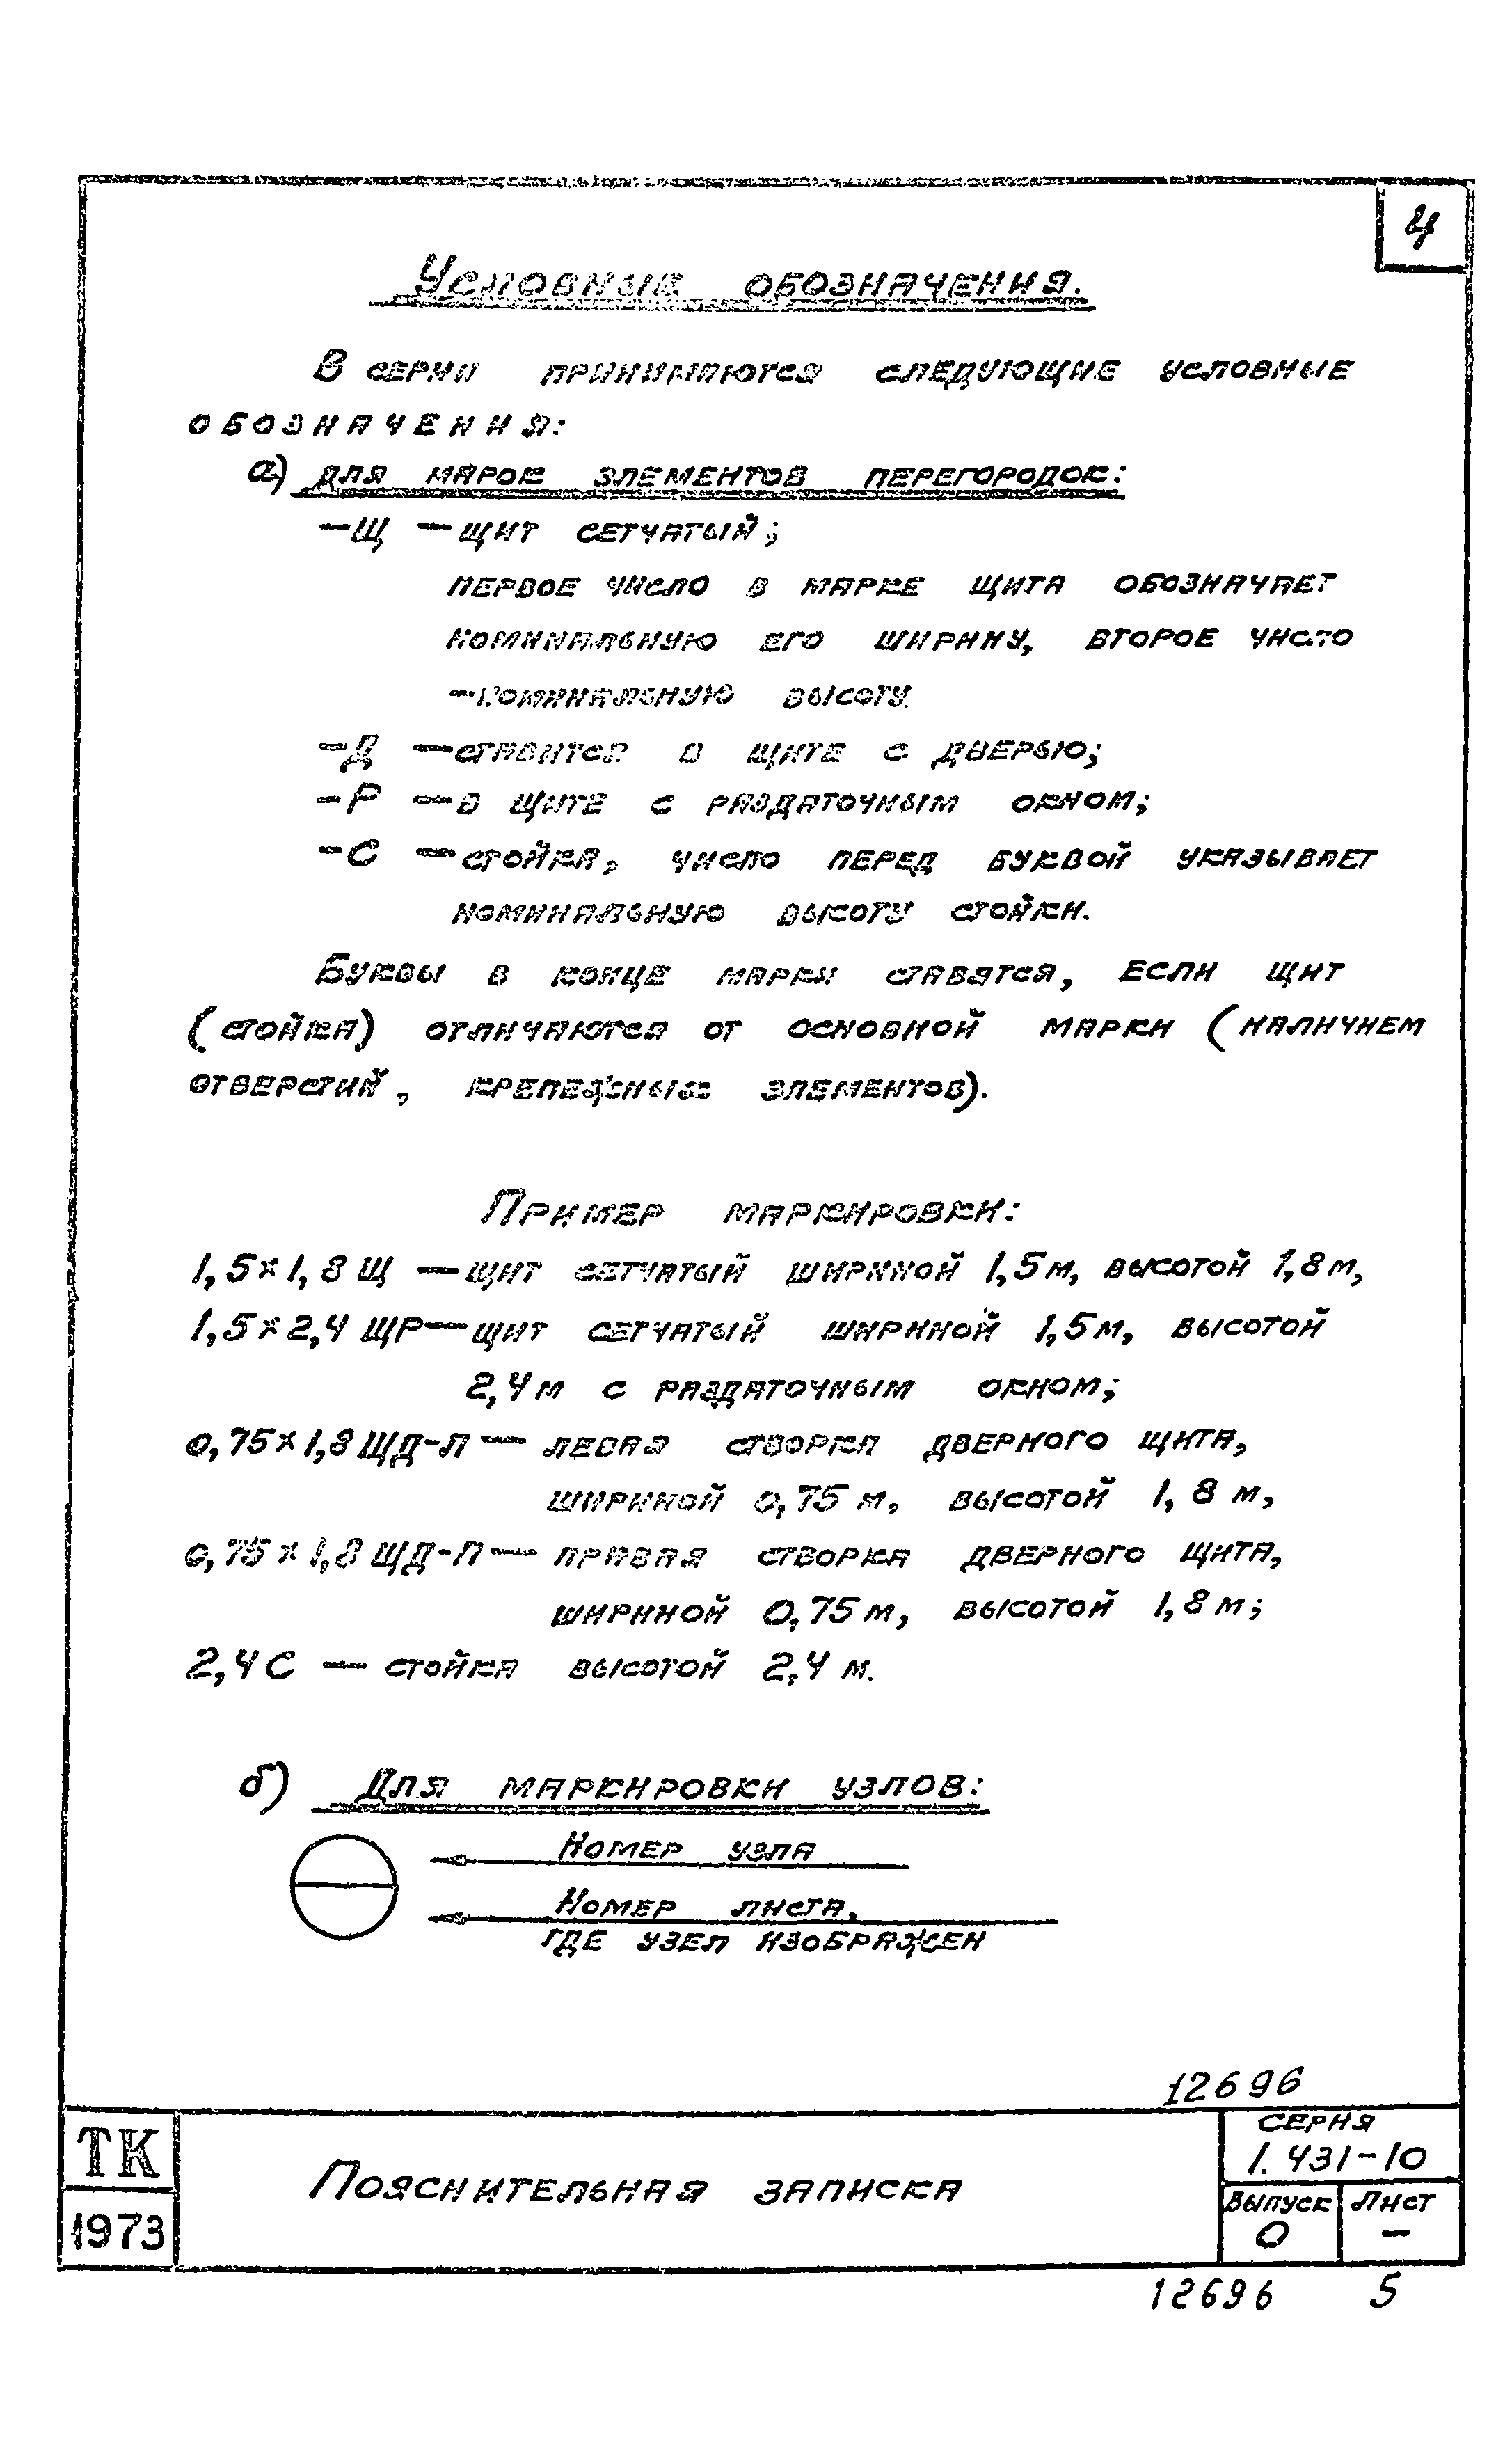 4
Условные обозначения.
В серии принимаются следующие условные
обозначения:
а) для марок элементов перегородок:
-Щ — щит сетчатый;
первое число в марке щита обозначает
номинальную его ширину, второе число
-номинальную высоту.
-Д — ставится в щите с дверью;
-Р — в щите с раздаточным окном;
-С — стойка, число перед буквой указывает
номинальную высоту стойки.
Буквы в конце марки ставятся, если щит
(стойка) отличаются от основной марки (наличием
отверстий, крепежных элементов).
Пример маркировки:
1,5×1,8 Щ — щит сетчатый шириной 1,5 м, высотой 1,8 м,
1,5×2,4 ЩР — щит сетчатый шириной 1,5 м, высотой
2,4 м с раздаточным окном;
0,75×1,8 ЩД-Л — левая створка дверного щита,
шириной 0,75 м, высотой 1,8 м,
0,75×1,8 ЩД-П — правая створка дверного щита,
шириной 0,75 м, высотой 1,8 м;
2,4 С — стойка высотой 2,4 м.
б) Для маркировки узлов:
Номер узла
Номер листа,
где узел изображен
12696
ТК
1973
Пояснительная записка
серия
1.431-10
выпуск
0
лист
-
12696 5